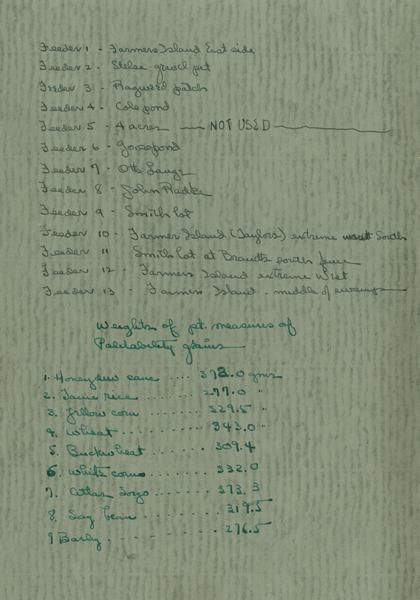 Feeder 1 - Farmers Island East side
Feeder 2 - gravel pit
Feeder 3 - Ragweed patch
Feeder 4 - Cole pond
Feeder 5 - 4 acres — NOT USED —
Feeder 6 - Goosepond
Feeder 7 - Otto
Feeder 8 - John Radke
Feeder 9 - Smith lot
Feeder 10 - Farmer Island (Taylors) extreme South
Feeder 11 Smith lot at Brandts south fence
Feeder 12 - Farmers Island extreme West
Feeder 13 - Farmers Island - middle of
Weights of pt. measures of
Palitability grains
1. Honeydew cane .... 372.0 gms
2. rice ........ 277.0 "
3. Yellow corn ...... 329.5 "
4. Wheat ........ 343.0
5. Buckwheat ...... 309.4
6. White corn ...... 332.0
7. Atlas Sorgo ....... 373.3
8. Soy bean ....... 319.5
9 Barley ......... 276.5